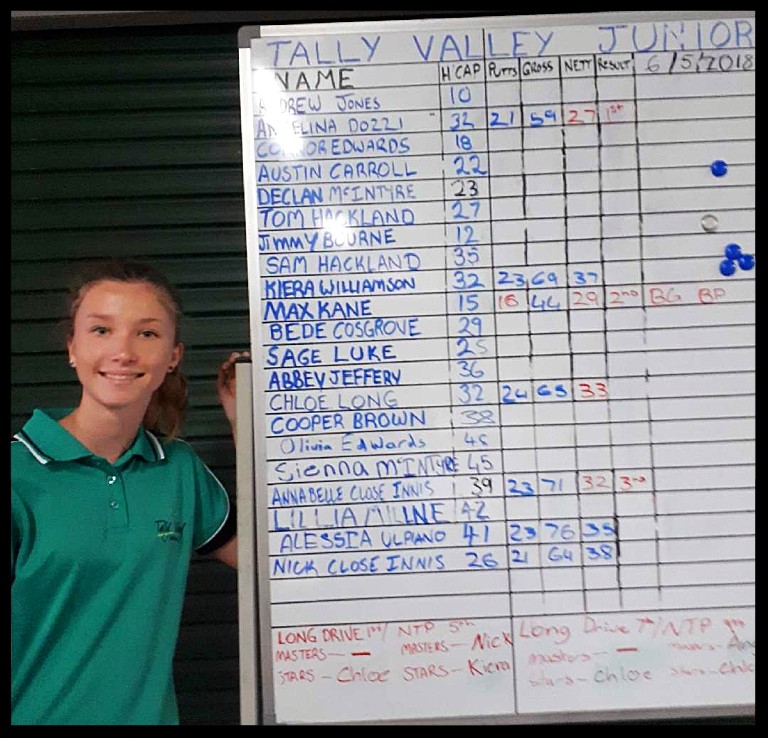 TALLY VALLEY JUNIOR
NAME H'CAP PUTTS GROSS NETT RESULT 6/5/2018
JONES 10
DOZZI 32 21 59 27 1st
EDWARDS 18
AUSTIN CARROLL 22
DECLAN McINTYRE 23
TOM HACKLAND 27
JIMMY BOURNE 12
SAM HACKLAND 35
KIERA WILLIAMSON 32 23 69 37
MAX KANE 15 16 44 29 2nd BG BP
BEDE COSGROVE 29
SAGE LUKE 25
ABBEY JEFFERY 36
CHLOE LONG 32 24 65 33
COOPER BROWN 38
Olivia Edwards 45
Sienna McINTYRE 45
ANNABELLE CLOSE INNIS 39 23 71 32 3rd
LILLIA MILLNE 42
ALESSIA ULPIANO 41 23 76 35
NICK CLOSE INNIS 26 21 64 38
LONG DRIVE 1st/ NTP 5th
MASTERS— — MASTERS— Nick
STARS - Chloe STARS - Kiera
Long Drive 7th/NTP 9th
masters- —
stars- Chloe